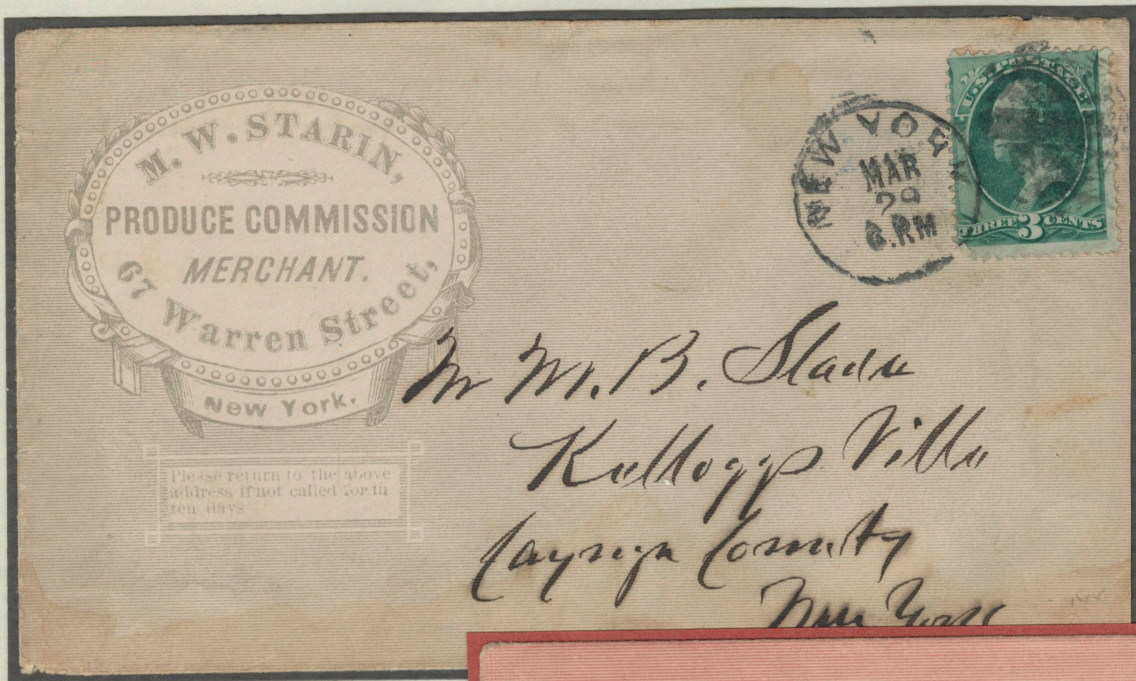 M. W. STARIN,
PRODUCE COMMISSION
MERCHANT.
67 Warren Street,
New York.
Please return to the above
address if not called for in
ten days
NEW YORK
MAR
29
6. P.M
U.S. POSTAGE
THREE 3 CENTS
Mr M. B. Slade
Kelloggs Ville
Cayuga County
New York